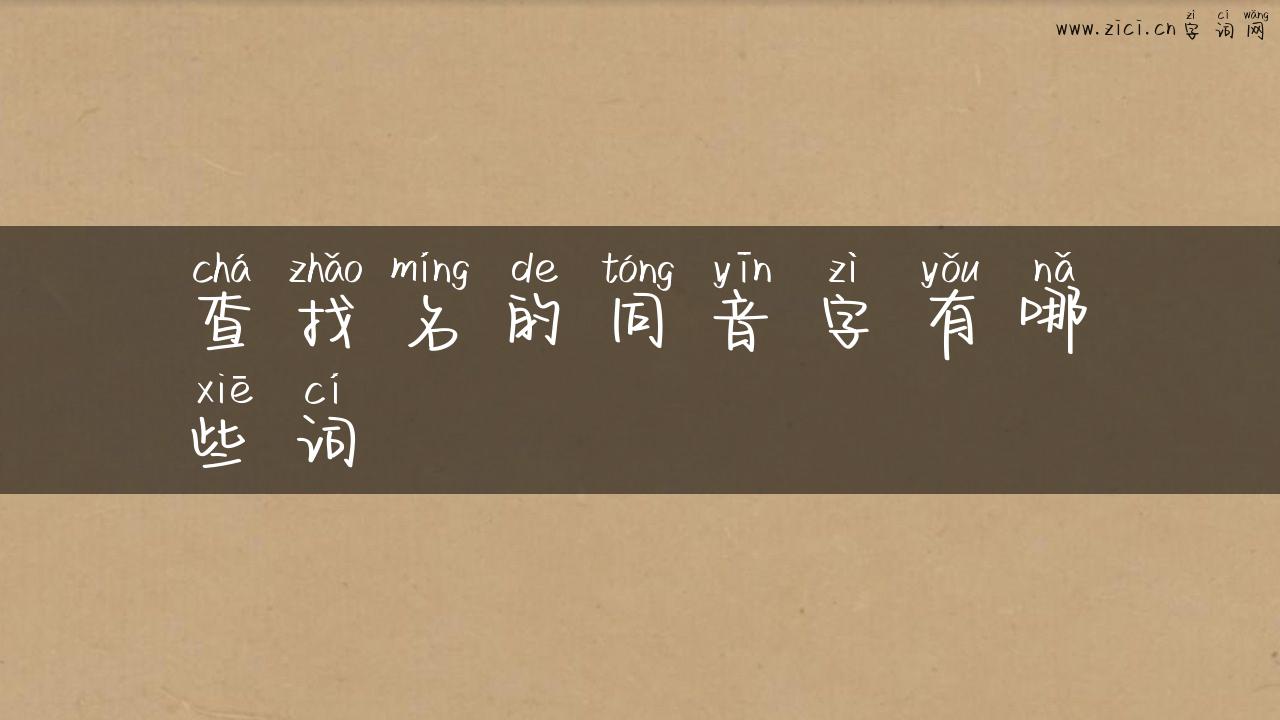 zì cí wǎng
www.zici.cn 字词网
chá zhǎo míng de tóng yīn zì yǒu nǎ
查找名的同音字有哪
xiē cí
些词